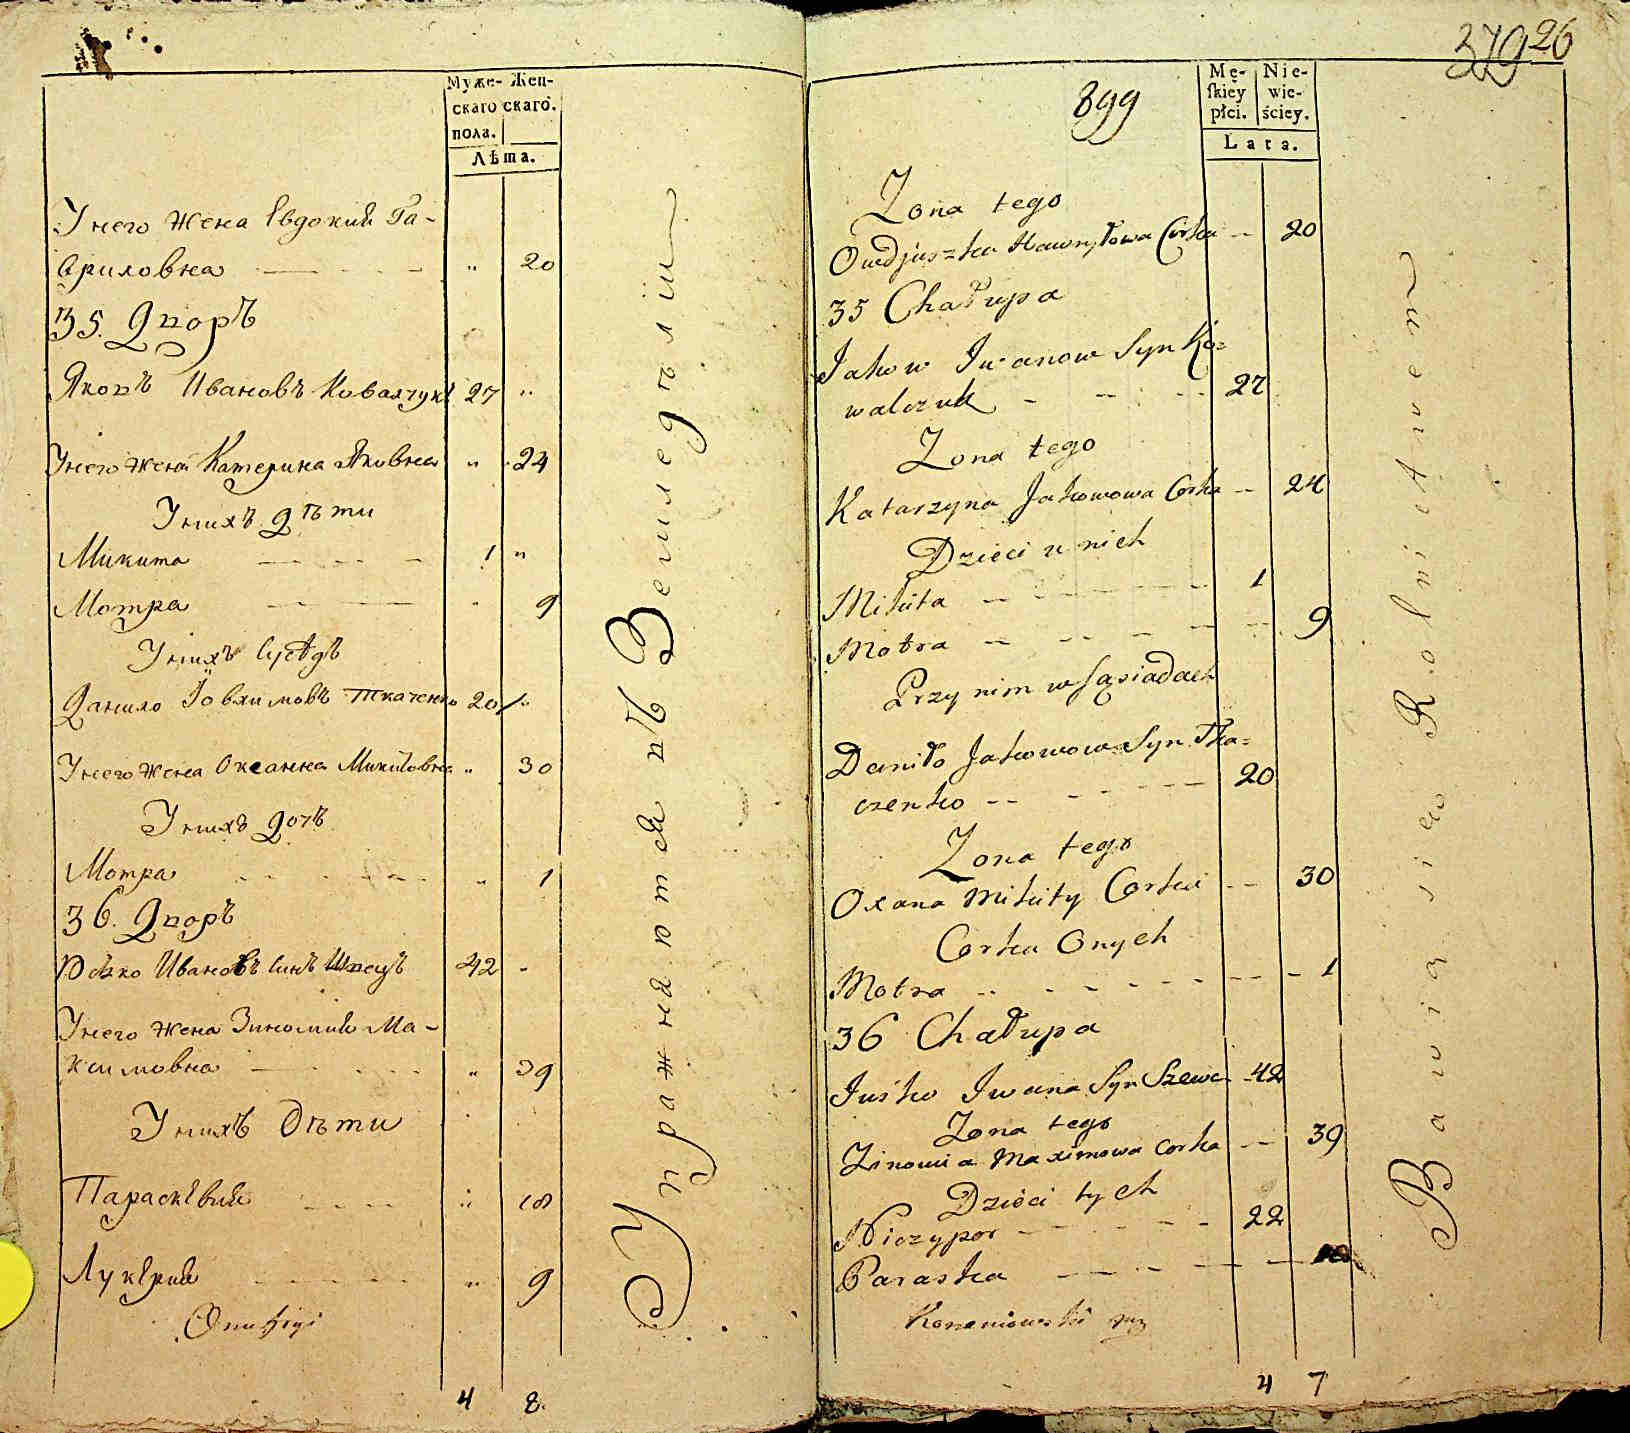 Муже- Жен-
скаго скаго.
пола.
Лѣта.
У него жена Евдокия Га-
вриловна — " 20
35. Дворъ
Яковъ Ивановъ Ковалчукъ 27 "
У него жена Катерина Яковна " 24
У нихъ дѣти
Микита 1 "
Мотра " 9
У нихъ Сусѣдъ
Данило Иовхимовъ Ткаченко 20 "
У него жена Оксанна Микитовна " 30
У нихъ дочь
Мотра " 1
36. Дворъ
Юско Ивановъ Синъ Швецъ 42 "
У него жена Зиновия Ма-
ксимовна " 39
У нихъ Дѣти
Параскевия " 18
Лукерия " 9
4 8
Упражняются въ Земледѣлии
379 26
899
Mę- Nie-
skiey wie-
płci. ściey.
Lata.
Zona tego
Owdjuszka Hawryłowa Corka -- 20
35 Chałupa
Jakow Iwanow Syn Ko=
walczuk 27
Zona tego
Katarzyna Jakowowa Corka -- 24
Dzieci u nich
Mikita 1
Motra 9
Przy nim w Sąsiadach
Daniło Jakowowa Syn Tka=
czenko 20
Zona tego
Oxana Mikity Corka -- 30
Corka Onych
Motra 1
36 Chałupa
Jusko Iwana Syn Szewc 42
Zona tego
Zinowia Maximowa Corka -- 39
Dzieci tych
Niczypor 22
Paraska
4 7
Bawią się Rolnictwem